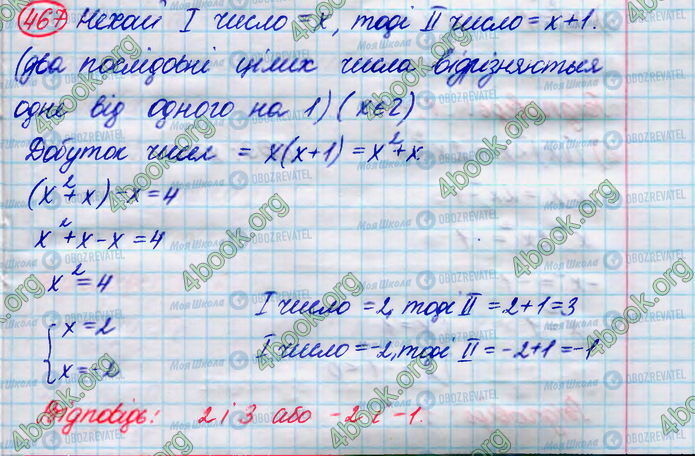 467 Нехай I число = x, тоді II число = x+1.
(два послідовні цілих числа відрізняються
одне від одного на 1) (x∈Z)
Добуток чисел = x(x+1) = x²+x
(x²+x)-x=4
x²+x-x=4
x²=4
{x=2
x=-2
I число =2, тоді II =2+1=3
I число =-2, тоді II =-2+1=-1
Відповідь: 2 і 3 або -2 і -1.
4book.org
Моя Школа OBOZREVATEL